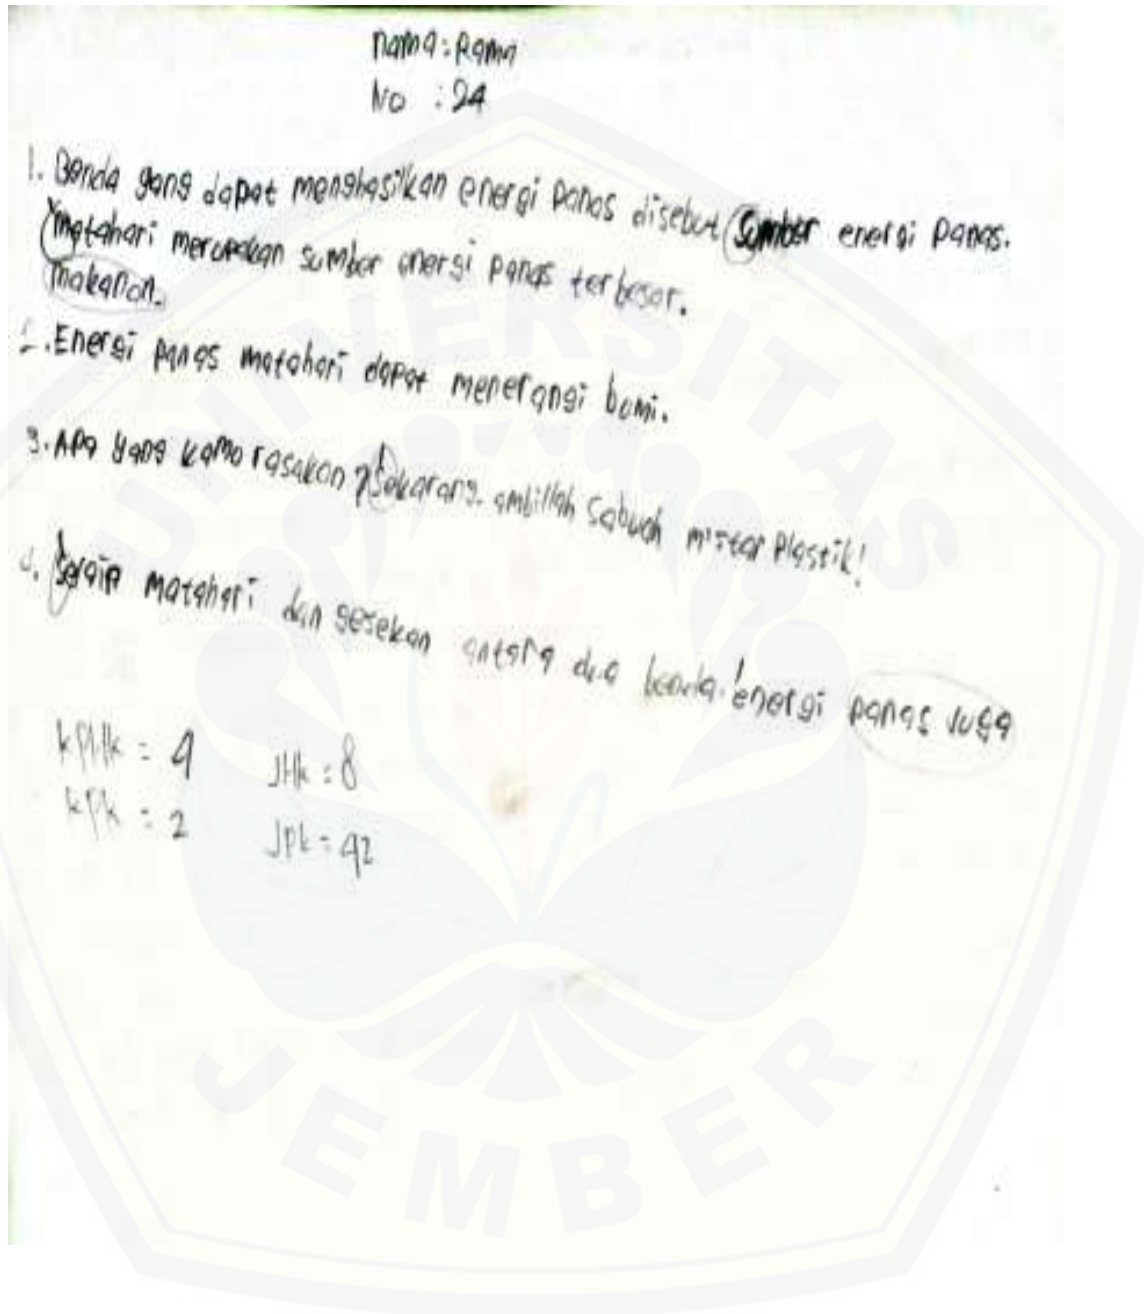 nama: Rama
No : 24
1. Benda yang dapat menghasilkan energi panas disebut sumber energi panas.
matahari merupakan sumber energi panas terbesar.
makanan.
2. Energi panas matahari dapat menerangi bumi.
3. Apa yang kamo rasakan? Sekarang. ambillah sabuah mistar Plastik!
4. matahari dan gesekan antara dua benda. energi panas juga
kPHk = 4 JHk : 8
kPk = 2 JPk = 42
UNIVERSITAS
JEMBER